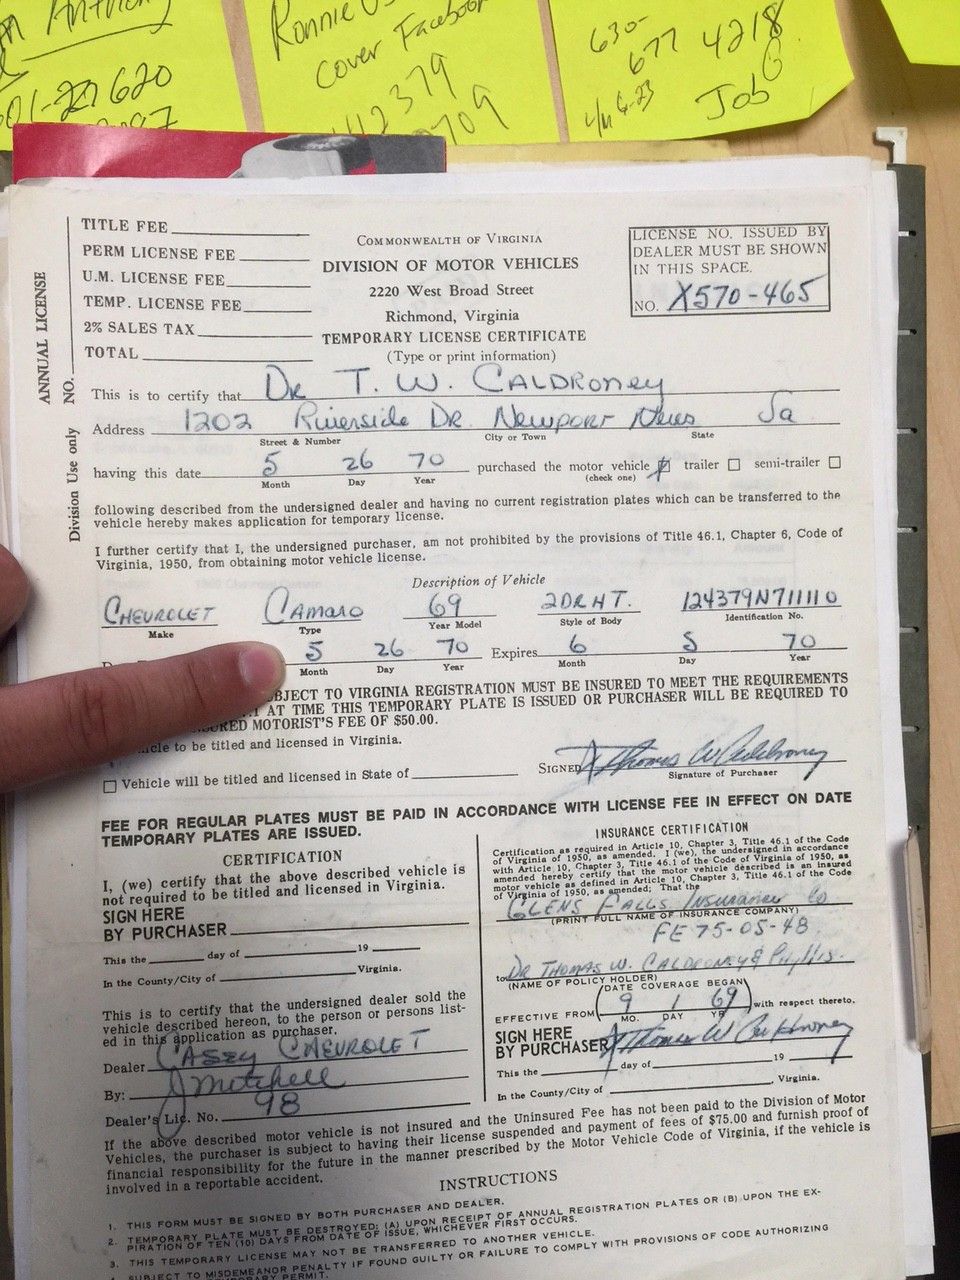 Ronnie
Cover Facebook
12379
709
01-227 620
630-
677 4218
G
4/M 6-23
Job
TITLE FEE
PERM LICENSE FEE
U.M. LICENSE FEE
TEMP. LICENSE FEE
2% SALES TAX
TOTAL
ANNUAL LICENSE
NO.
Division Use only
COMMONWEALTH OF VIRGINIA
DIVISION OF MOTOR VEHICLES
2220 West Broad Street
Richmond, Virginia
TEMPORARY LICENSE CERTIFICATE
(Type or print information)
LICENSE NO. ISSUED BY
DEALER MUST BE SHOWN
IN THIS SPACE.
NO. X570-465
This is to certify that DR T. W. CALDRONEY
Address 1202 Riverside DR. NEWPORT News Va
Street & Number City or Town State
having this date 5 26 70 purchased the motor vehicle trailer semi-trailer
Month Day Year (check one)
following described from the undersigned dealer and having no current registration plates which can be transferred to the
vehicle hereby makes application for temporary license.
I further certify that I, the undersigned purchaser, am not prohibited by the provisions of Title 46.1, Chapter 6, Code of
Virginia, 1950, from obtaining motor vehicle license.
Description of Vehicle
CHEVROLET CAMARO 69 2DR HT. 124379N711110
Make Type Year Model Style of Body Identification No.
5 26 70 Expires 6 5 70
Month Day Year Month Day Year
BJECT TO VIRGINIA REGISTRATION MUST BE INSURED TO MEET THE REQUIREMENTS
AT TIME THIS TEMPORARY PLATE IS ISSUED OR PURCHASER WILL BE REQUIRED TO
URED MOTORIST'S FEE OF $50.00.
icle to be titled and licensed in Virginia.
Vehicle will be titled and licensed in State of
SIGNED X Thomas W Caldroney
Signature of Purchaser
FEE FOR REGULAR PLATES MUST BE PAID IN ACCORDANCE WITH LICENSE FEE IN EFFECT ON DATE
TEMPORARY PLATES ARE ISSUED.
CERTIFICATION
I, (we) certify that the above described vehicle is
not required to be titled and licensed in Virginia.
SIGN HERE
BY PURCHASER
This the day of 19
In the County/City of Virginia.
This is to certify that the undersigned dealer sold the
vehicle described hereon, to the person or persons list-
ed in this application as purchaser.
Dealer CASEY CHEVROLET
By: J Mitchell
Dealer's Lic. No. 98
INSURANCE CERTIFICATION
Certification as required in Article 10, Chapter 3, Title 46.1 of the Code
of Virginia of 1950, as amended. I (we), the undersigned in accordance
with Article 10, Chapter 3, Title 46.1 of the Code of Virginia of 1950, as
amended hereby certify that the motor vehicle described is an insured
motor vehicle as defined in Article 10, Chapter 3, Title 46.1 of the Code
of Virginia of 1950, as amended; That the
GLENS FALLS INSURANCE Co
(PRINT FULL NAME OF INSURANCE COMPANY)
FE 75-05-48
to DR THOMAS W. CALDRONEY & Phyllis.
(NAME OF POLICY HOLDER)
(DATE COVERAGE BEGAN)
EFFECTIVE FROM 9 1 69 with respect thereto.
MO. DAY YR.
SIGN HERE
BY PURCHASER X Thomas W Caldroney
This the day of 19
In the County/City of , Virginia.
If the above described motor vehicle is not insured and the Uninsured Fee has not been paid to the Division of Motor
Vehicles, the purchaser is subject to having their license suspended and payment of fees of $75.00 and furnish proof of
financial responsibility for the future in the manner prescribed by the Motor Vehicle Code of Virginia, if the vehicle is
involved in a reportable accident.
INSTRUCTIONS
1. THIS FORM MUST BE SIGNED BY BOTH PURCHASER AND DEALER.
2. TEMPORARY PLATE MUST BE DESTROYED; (A) UPON RECEIPT OF ANNUAL REGISTRATION PLATES OR (B) UPON THE EX-
PIRATION OF TEN (10) DAYS FROM DATE OF ISSUE, WHICHEVER FIRST OCCURS.
3. THIS TEMPORARY LICENSE MAY NOT BE TRANSFERRED TO ANOTHER VEHICLE.
SUBJECT TO MISDEMEANOR PENALTY IF FOUND GUILTY OR FAILURE TO COMPLY WITH PROVISIONS OF CODE AUTHORIZING
PERMIT.